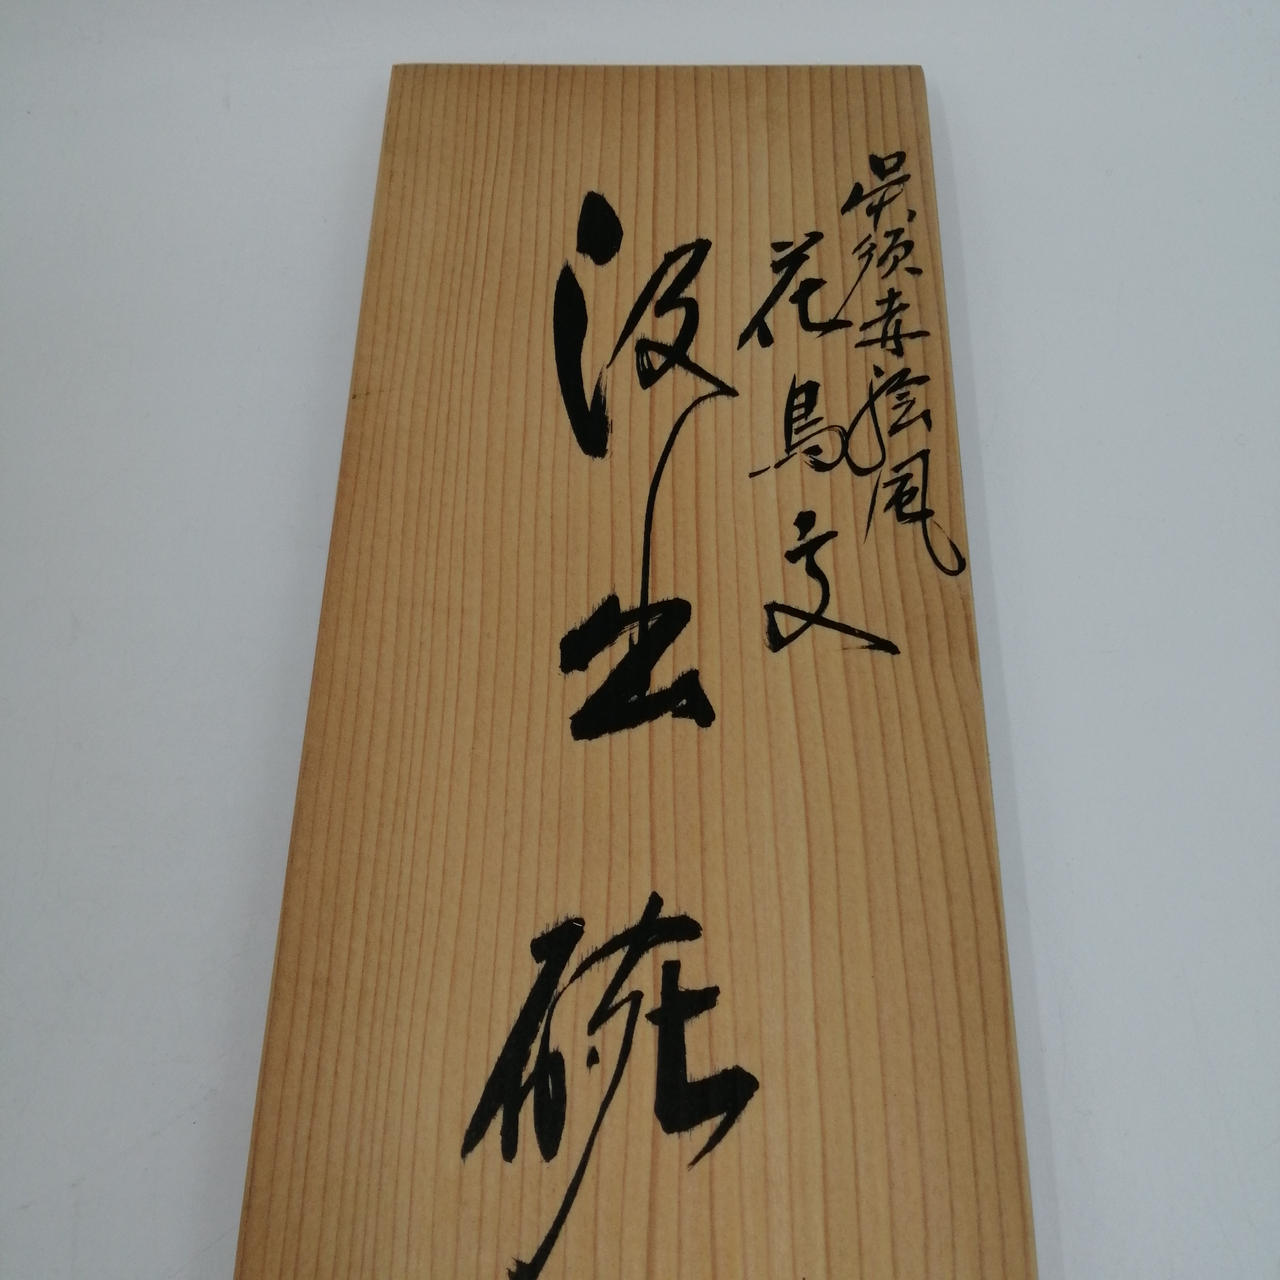 呉須赤絵風
花鳥文
汲出碗